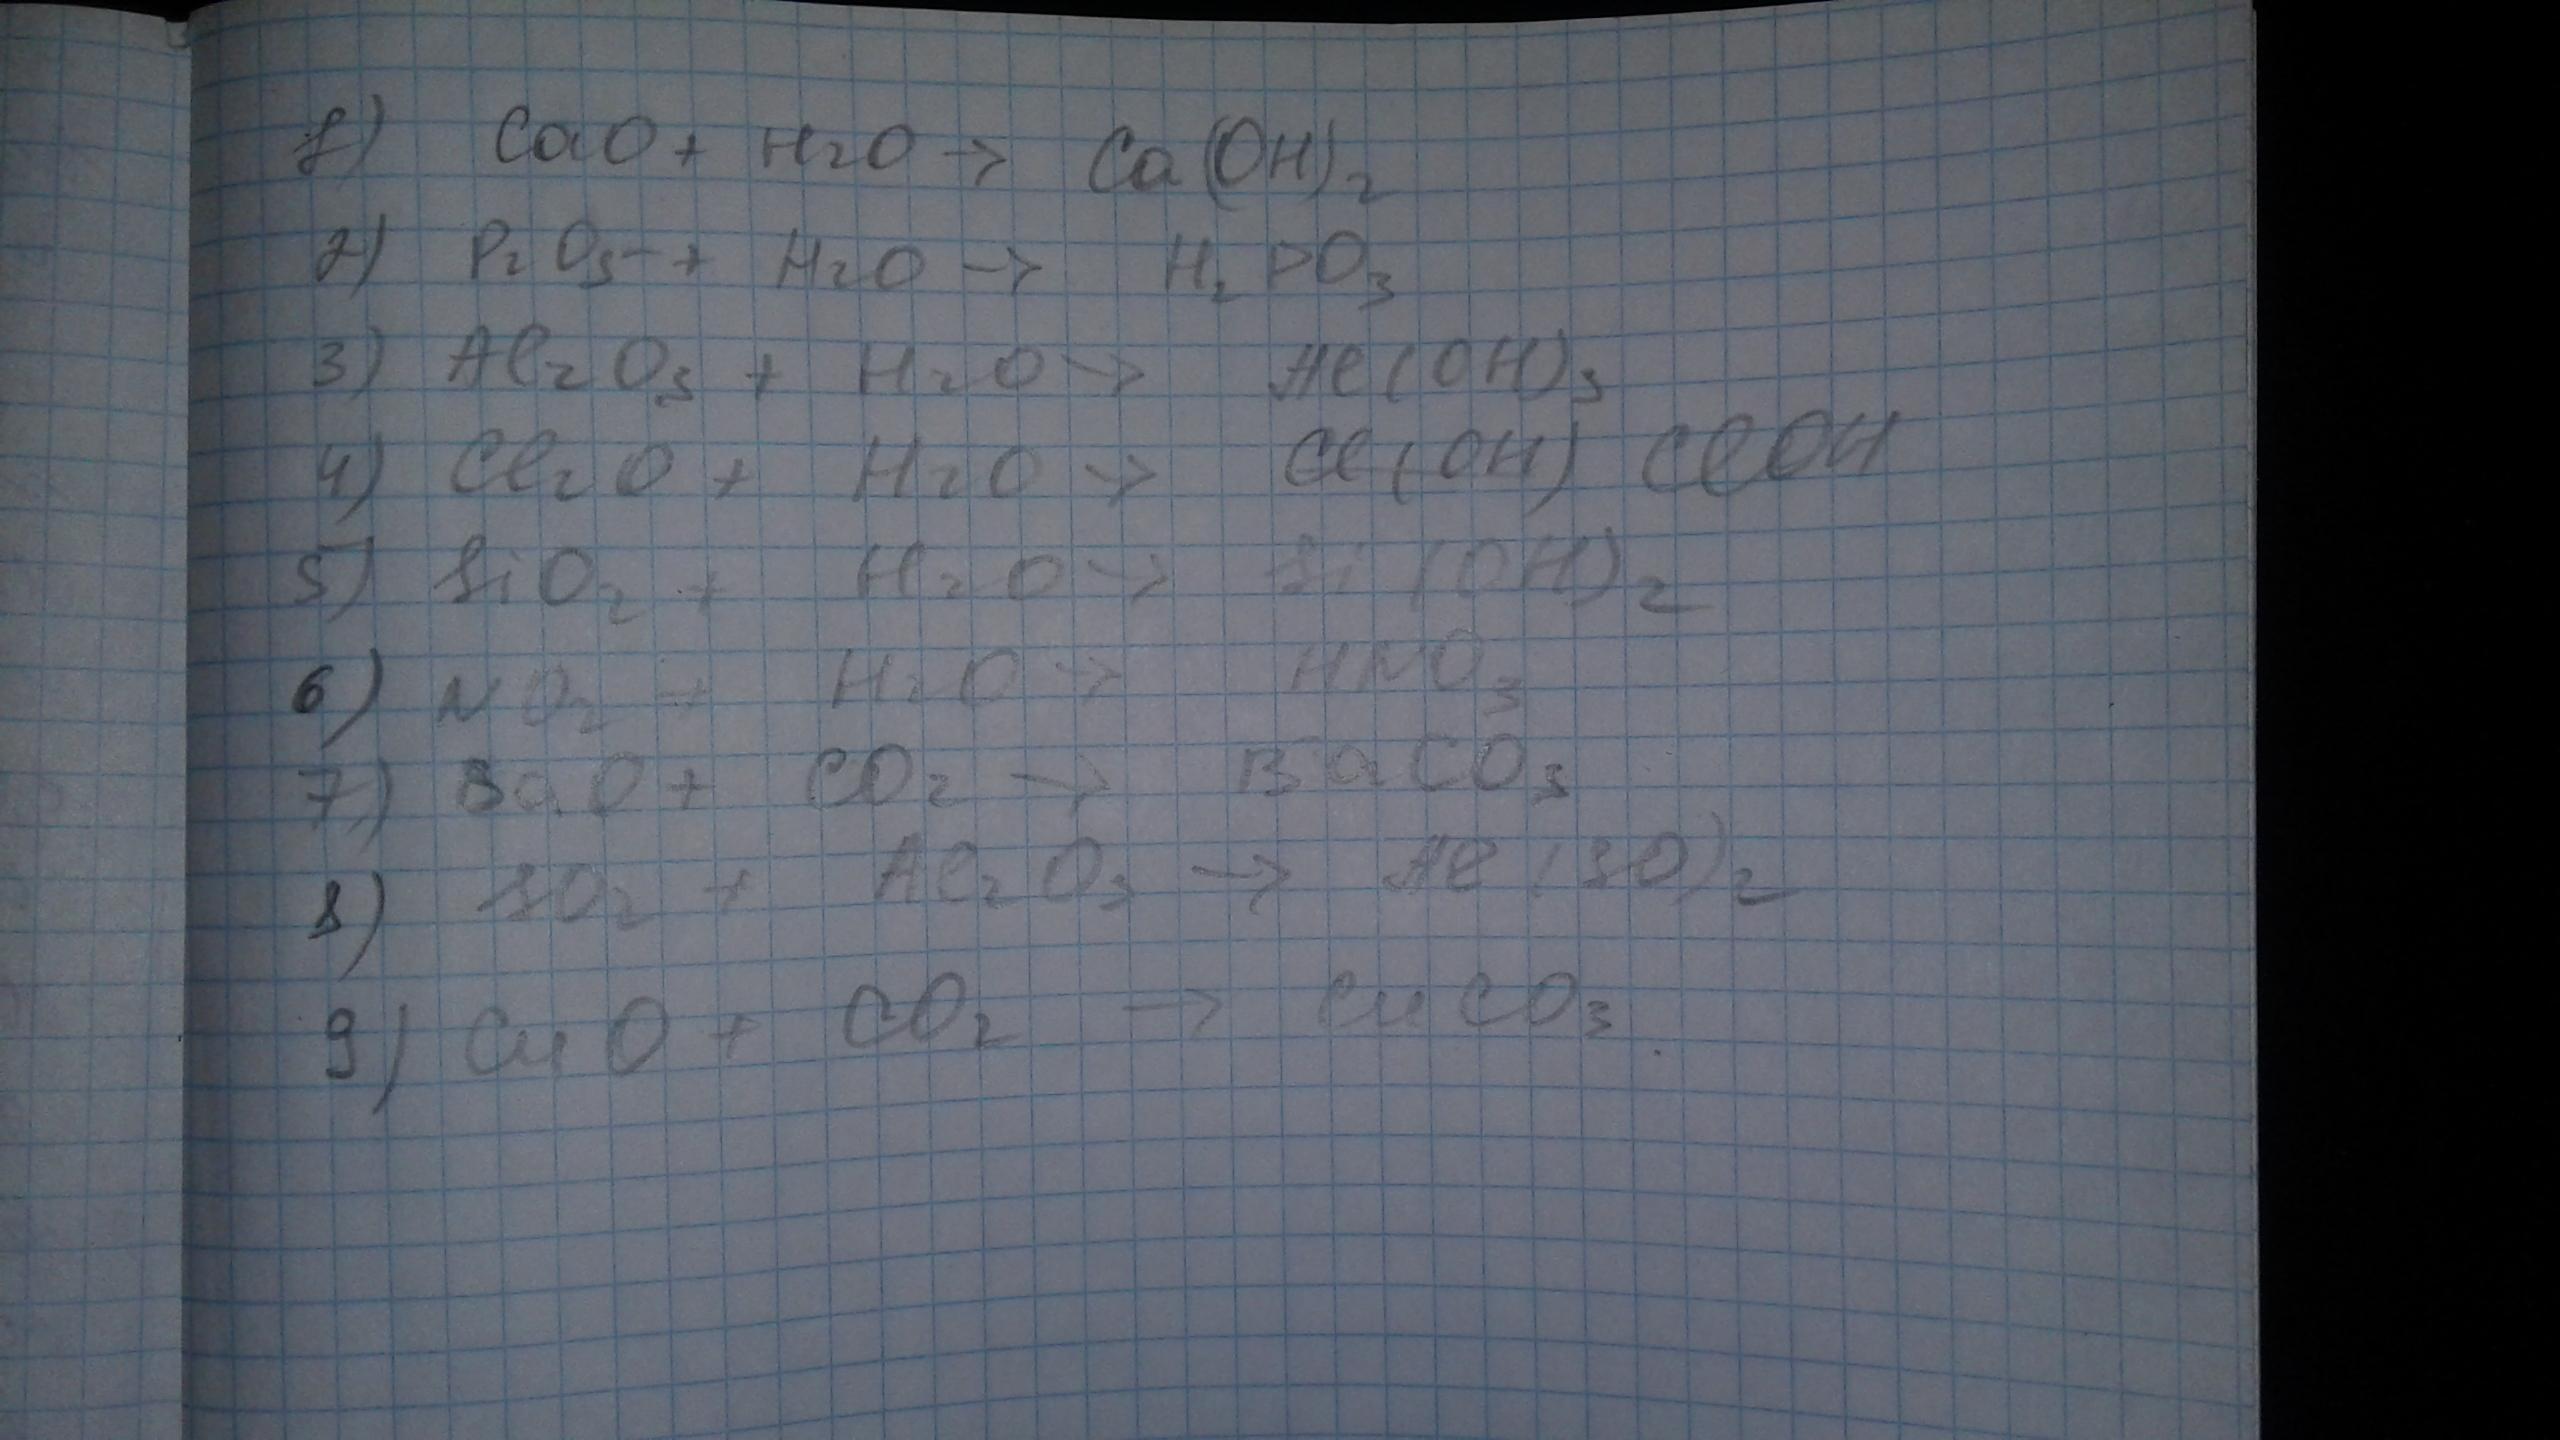 1) CaO + H2O → Ca(OH)2
2) P2O5 + H2O → H2PO3
3) Al2O3 + H2O → Al(OH)3
4) Cl2O + H2O → Cl(OH) ClOH
5) SiO2 + H2O → Si(OH)2
6) NO2 + H2O → HNO3
7) BaO + CO2 → BaCO3
8) SO2 + Al2O3 → Al(SO)2
9) CuO + CO2 → CuCO3